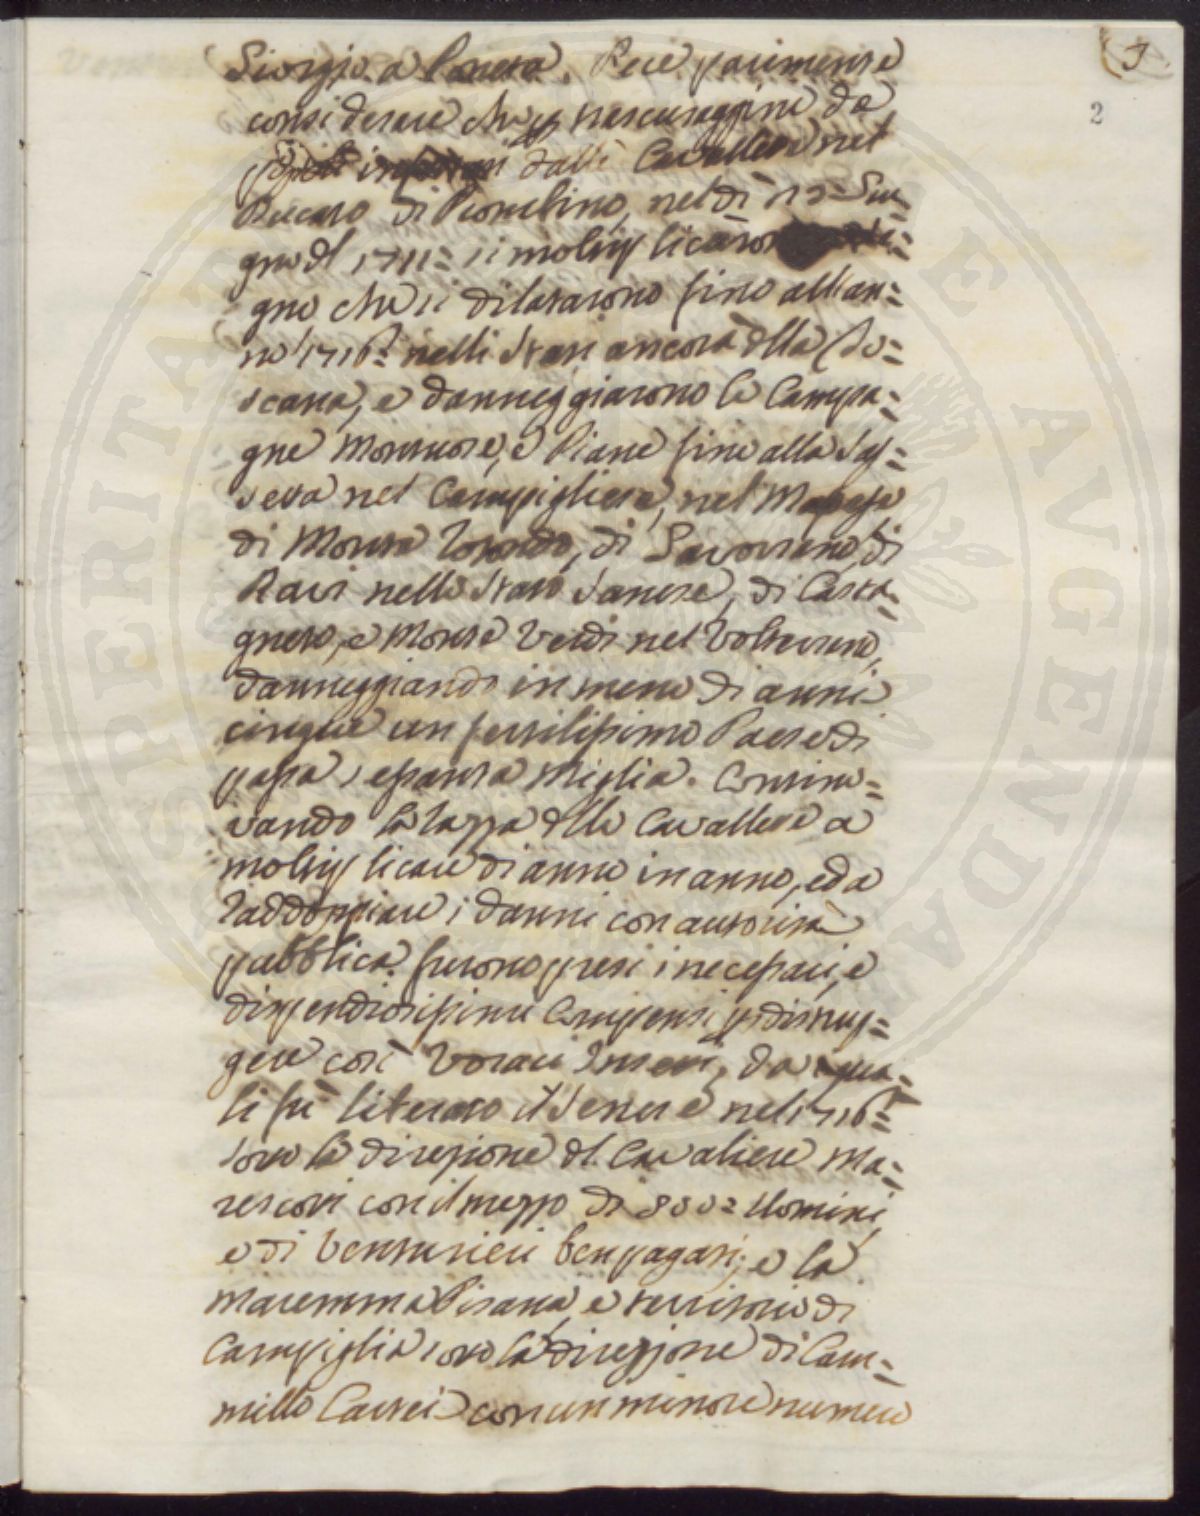 3
2
Giorgio a Porera. Fece parimente
considerare che p trascuraggine da
dalli Cavallette nel
Ducato di Piombino, nel dì 13= Giu=
gno dl 1711= si moltiplicaron
gno che si dilatarono fino all'an=
no 1716= nelli Stati ancora dlla To=
scana, e danneggiarono le Campa=
gne Montuose, e Piane fino alla Sas=
seta nel Campigliese, nel Massese
di Monte Rotondo, di Gavorrano, di
Ravi nello Stato Sanese, di Casta=
gneto, e Monte Verdi nel Volterrano,
danneggiando in meno di anni
cinque un fertilissimo Paese di
passa settanta Miglia. Contin=
uando la razza dlle Cavallette a
moltiplicare di anno in anno, ed a
raddoppiare i danni con autorità
pubblica furono presi i necessari, e
dispendiosissimi Compensi p distrug=
gere così voraci Insetti, da qua=
li fù liberato il Senese nel 1716=
sotto la direzione dl Cavaliere Ma=
rescotti con il mezzo di 800= Uomini,
e di Venturieri ben pagati; e la
Maremma Pisana, e territorio di
Campiglia sotto la direzzione di Cam=
millo Cartei con un minore numero
SPERITATE AVGENDA